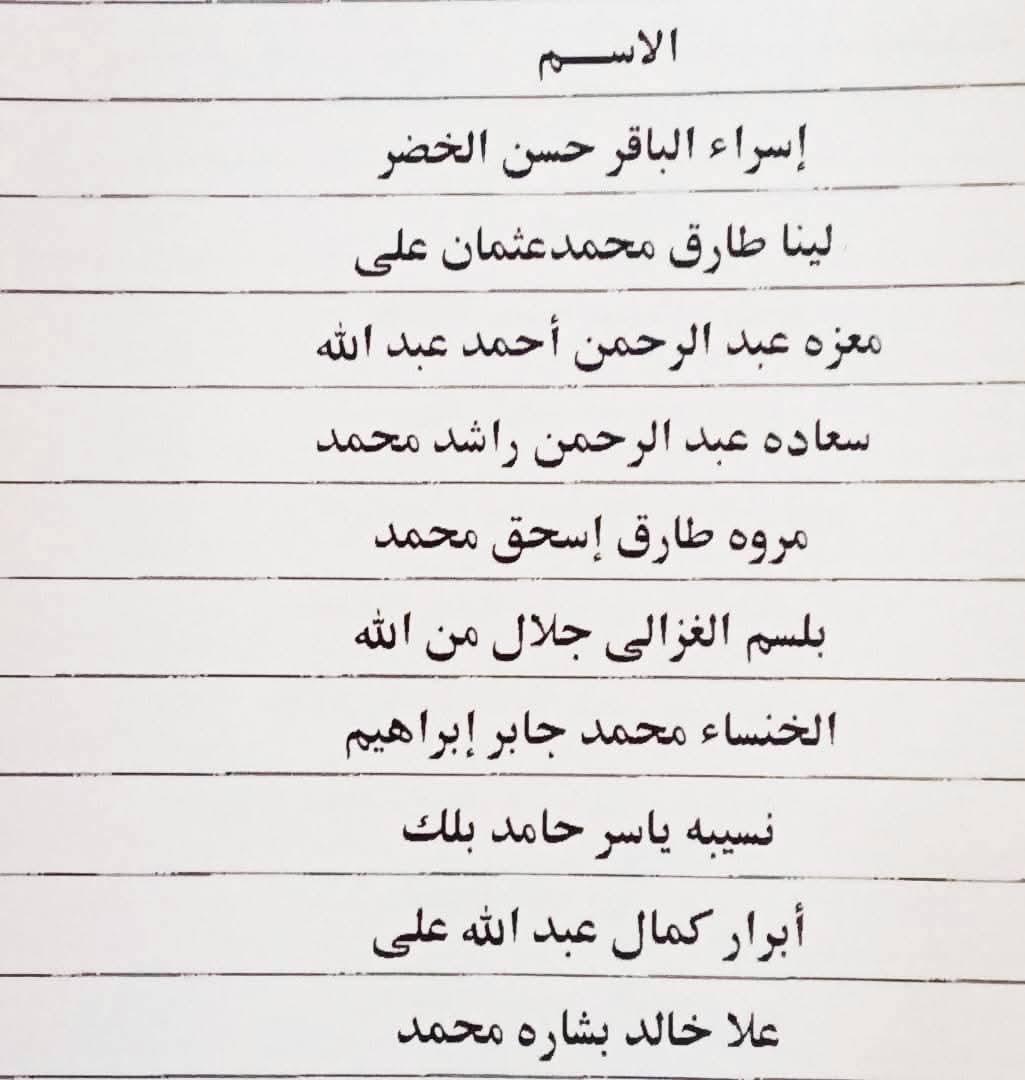 الاســـم
إسراء الباقر حسن الخضر
لينا طارق محمدعثمان على
معزه عبد الرحمن أحمد عبد الله
سعاده عبد الرحمن راشد محمد
مروه طارق إسحق محمد
بلسم الغزالى جلال من الله
الخنساء محمد جابر إبراهيم
نسيبه ياسر حامد بلك
أبرار كمال عبد الله على
علا خالد بشاره محمد